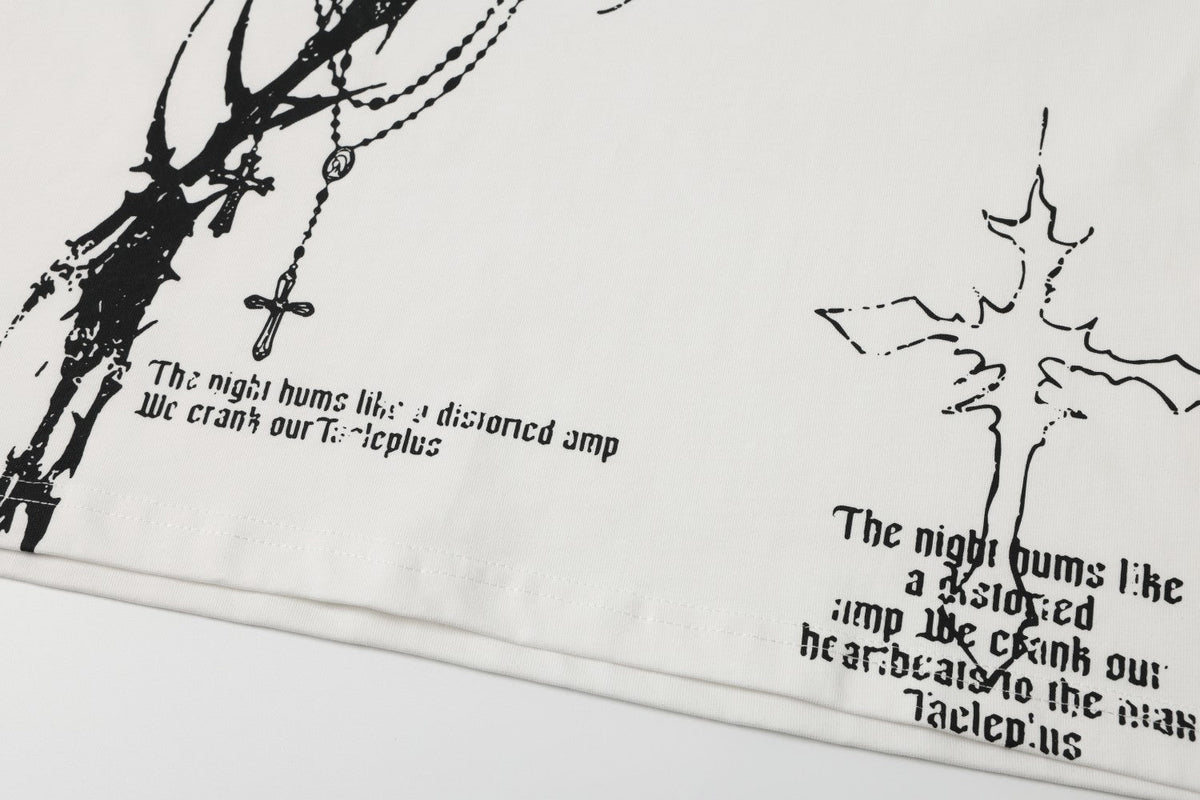 The night hums like a distorted amp
We crank our Tacleplus
The night hums like
a distorted
amp We crank our
heartbeats to the max
Tacleplus